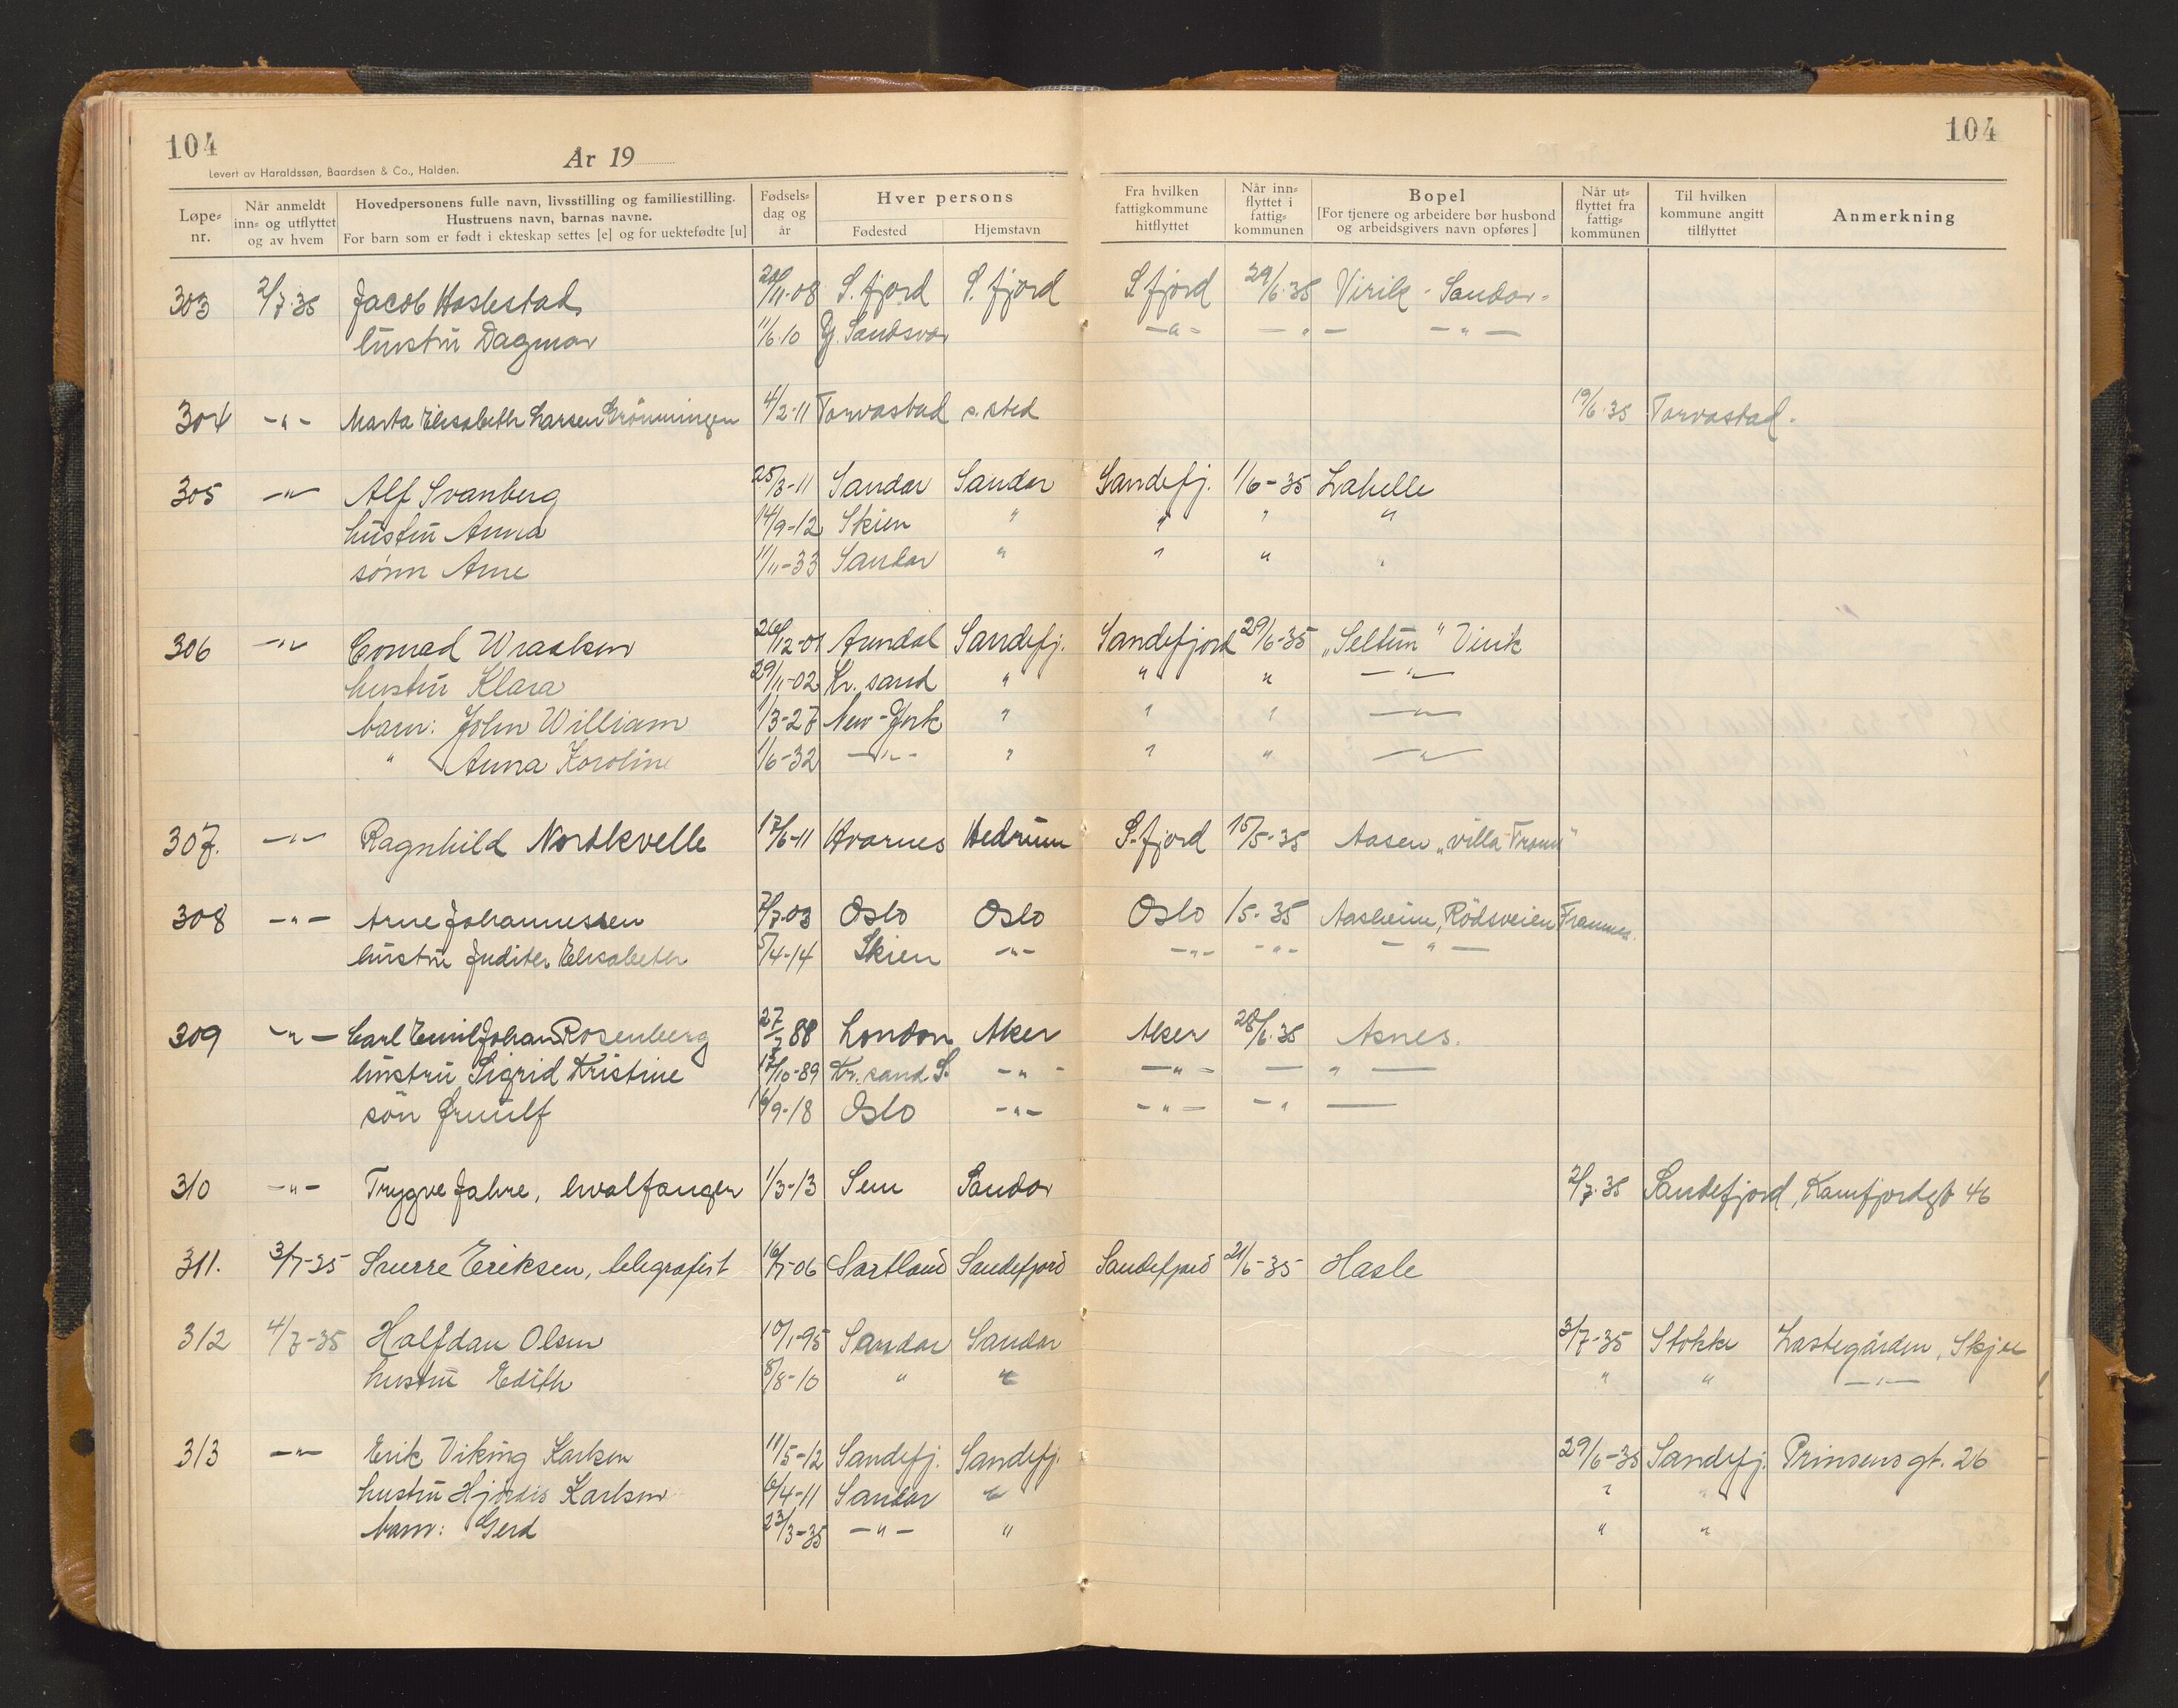 104
År 19
104
Levert av Haraldssøn, Baardsen & Co., Halden.
Løpe-nr. Når anmeldt inn- og utflyttet og av hvem Hovedpersonens fulle navn, livsstilling og familiestilling. Hustruens navn, barnas navne. For barn som er født i ekteskap settes [e] og for uektefødte [u] Fødsels-dag og år Hver persons Fødested Hjemstavn Fra hvilken fattigkommune hitflyttet Når inn-flyttet i fattig-kommunen Bopel [For tjenere og arbeidere bør husbond og arbeidsgivers navn opføres] Når ut-flyttet fra fattig-kommunen Til hvilken kommune angitt tilflyttet Anmerkning
303 2/7-35 Jacob Haslestad 20/11-08 S.fjord S.fjord S.fjord 29/6-35 Virik - Sandar -
hustru Dagmar 11/6-10 Y. Sandsvær -"- -"- -"-
304 -"- Marta Elisabeth Larsen Grönningen 4/2-11 Torvastad s.sted 19/6-35 Torvastad.
305 -"- Alf Svanberg 25/3-11 Sandar Sandar Sandefj. 1/6-35 Lahelle
hustru Anna 14/9-12 Skien " " " "
sønn Arne 11/11-33 Sandar " " " "
306 -"- Conrad Wraalsen 26/12-01 Arendal Sandefj. Sandefjord 29/6-35 "Seltun" Virik
hustru Klara 29/11-02 Kr. sand " " " -"-
barn: John William 1/3-27 New-York " " " -"-
" Anna Karoline 1/6-32 -"- " " " -"-
307. -"- Ragnhild Nordkvelle 17/6-11 Hvarnes Hedrum S.fjord 15/5-35 Aasen "villa Fram"
308 -"- Arne Johannessen 7/7-03 Oslo Oslo Oslo 1/5-35 Aasheim, Rödsveien Framnes.
hustru Judith Elisabeth 5/4-14 Skien -"- -"- -"- -"-
309 -"- Carl Emil Johan Rosenberg 27/7 88 London Aker Aker 28/6-35 Asnes.
hustru Sigrid Kristine 15/10-89 Kr. sand S. -"- -"- -"-
sön Ørnulf 16/9-18 Oslo -"- -"- -"-
310 -"- Trygve Jahre, hvalfanger 1/3-13 Sem Sandar 2/7-35 Sandefjord, Kamfjordgt 46
311. 3/7-35 Sverre Eriksen, telegrafist 16/7-06 Sortland Sandefjord Sandefjord 21/6-35 Hasle
312 4/7-35 Halfdan Olsen 10/1-95 Sandar Sandar 3/7-35 Stokke Lastegården, Skjee
hustru Edith 8/8-10 " " " " -"-
313 -"- Erik Viking Karlsen 11/5-12 Sandefj. Sandefj. 29/6-35 Sandefj. Prinsens gt. 26
hustru Hjördis Karlsen 6/4-11 Sandar " " "
barn: Gerd 23/3-35 -"- " " "